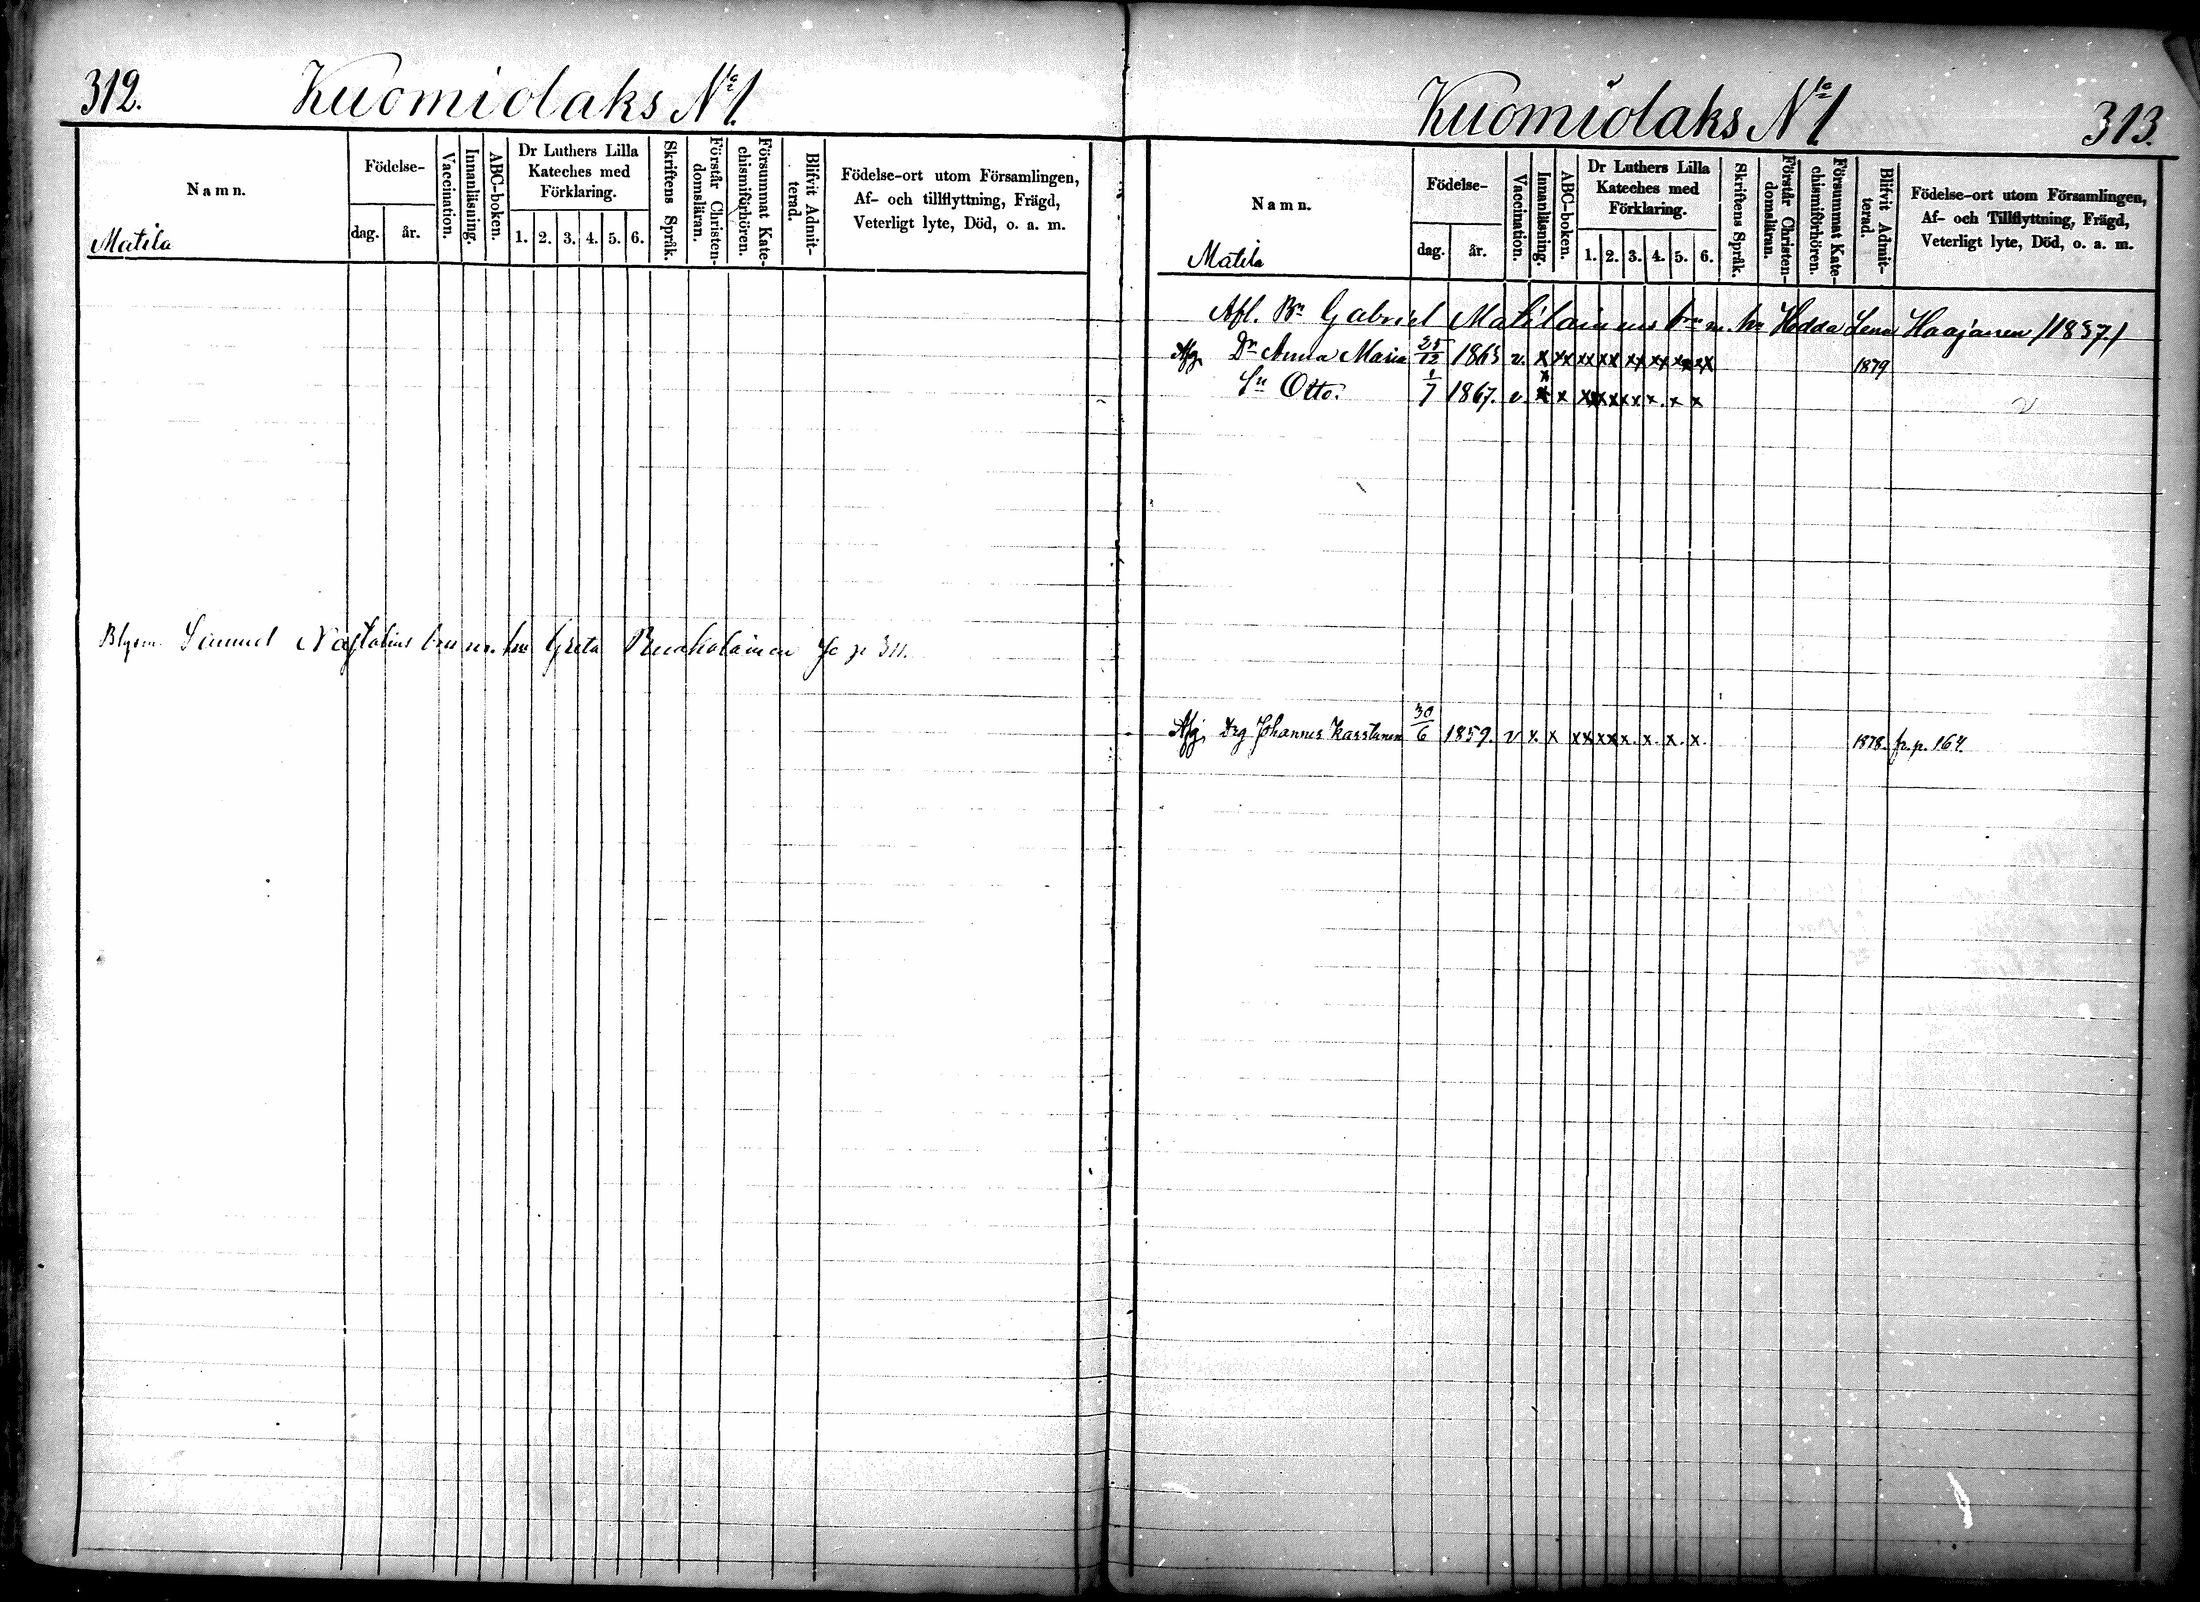 312. Kuomiolaks No 1.
Namn.
Födelse-
dag. år.
Vaccination.
Innanläsning.
ABC-boken.
Dr Luthers Lilla
Kateches med
Förklaring.
1. 2. 3. 4. 5. 6.
Skriftens Språk.
Förstår Christen-
domsläran.
Försummat Kate-
chismiförhören.
Blifvit Admit-
terad.
Födelse-ort utom Församlingen,
Af- och tillflyttning, Frägd,
Veterligt lyte, Död, o. a. m.
Matila
Samuel m. hu Greta p 311.
Kuomiolaks No 1 313.
Namn.
Födelse-
dag. år.
Vaccination.
Innanläsning.
ABC-boken.
Dr Luthers Lilla
Kateches med
Förklaring.
1. 2. 3. 4. 5. 6.
Skriftens Språk.
Förstår Christen-
domsläran.
Försummat Kate-
chismiförhören.
Blifvit Admit-
terad.
Födelse-ort utom Församlingen,
Af- och Tillflyttning, Frägd,
Veterligt lyte, Död, o. a. m.
Matila
Afl. Bn Gabriel Matilainens m. hu Hedda Lena Haajanen /1837./
Afg. Dr Anna Maria 25/12 1863 v. x xx xx xx xx xx xx xx 1879
Sn Otto. 1/7 1867. v. x x xx xx xx x. x x
Afg. Drg Johannes Kasstanen 30/6 1859. v x. x xx xx x. x. x. x. 1878. fr. p. 164.